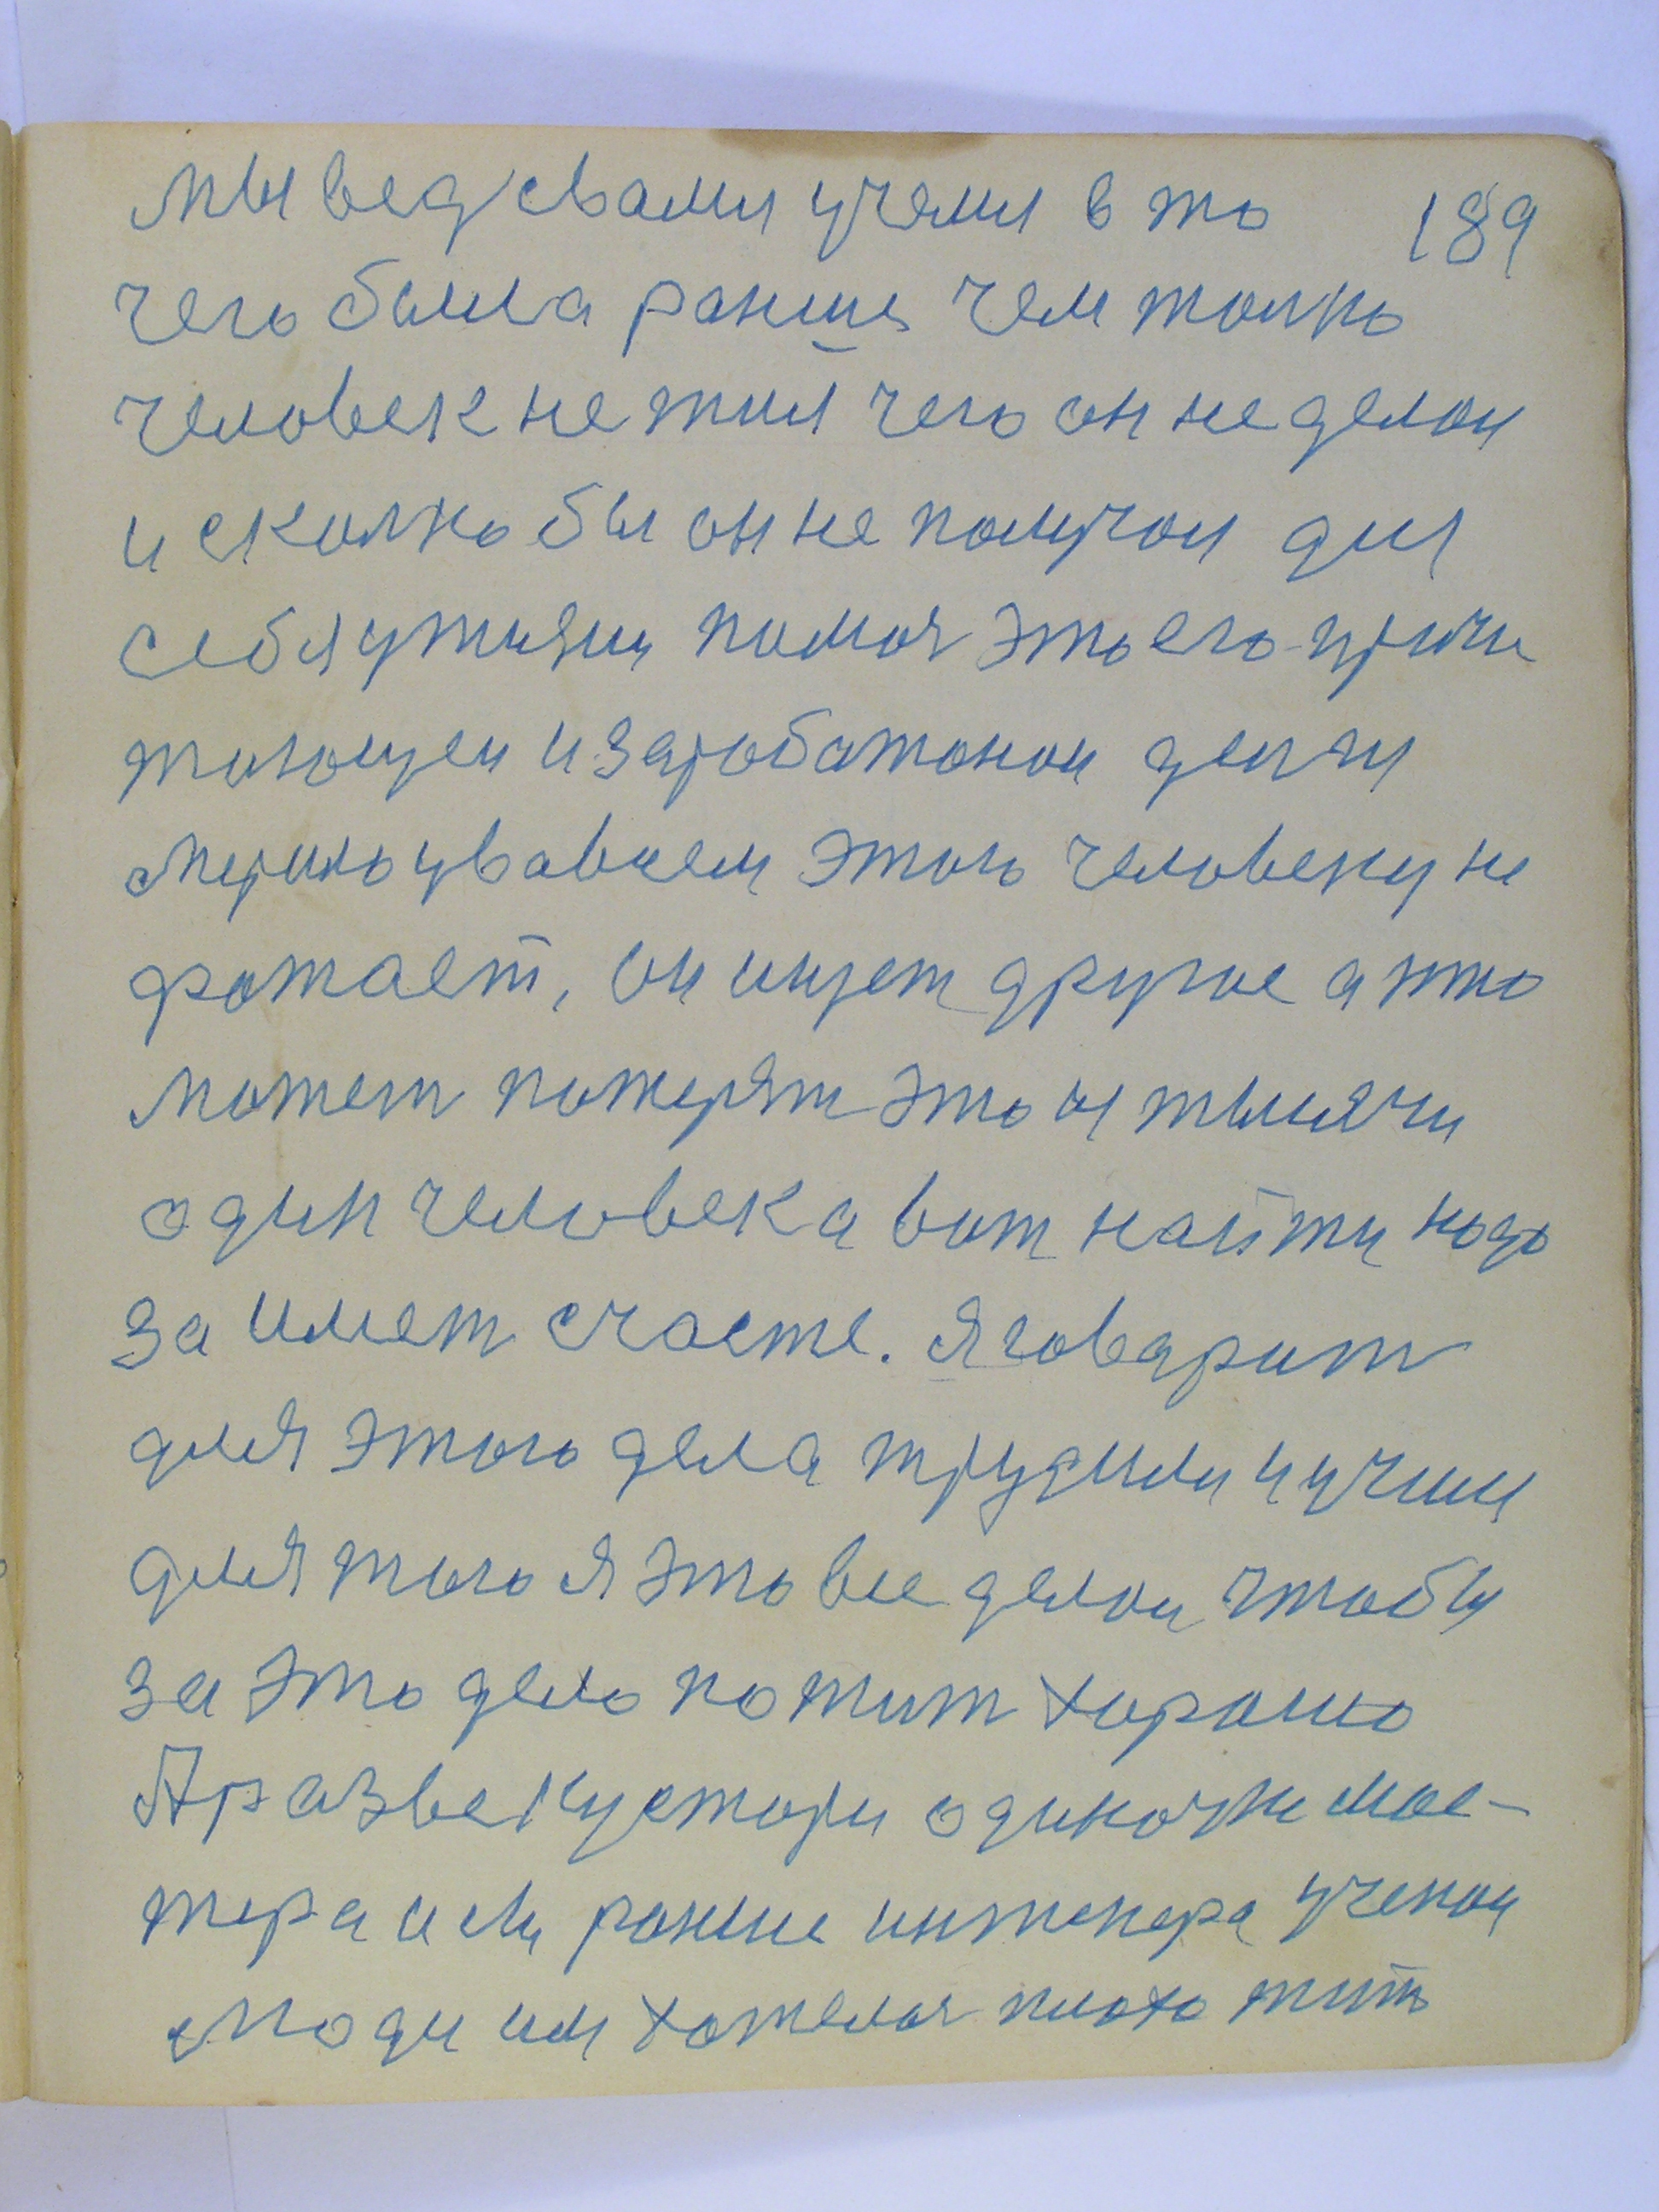 мы вед свами учени в то 189
чего была ранше чем толко
человек не жил чего он не делал
и сколко бы он не получал для
себя утизни полюя это его
и заработаной денги
этого человеку не
дожает, он ищет другое а што
может потерят это и тысячи
один человек а вот найти надо
за имет счасте. я говарит
для этого дела трудили и учили
для того я это все делал чтобы
за это дело пожит хорошо
А разве кустари одиночки мас-
тера или ранше инженера ученои
люди им хотелоя плохо жить